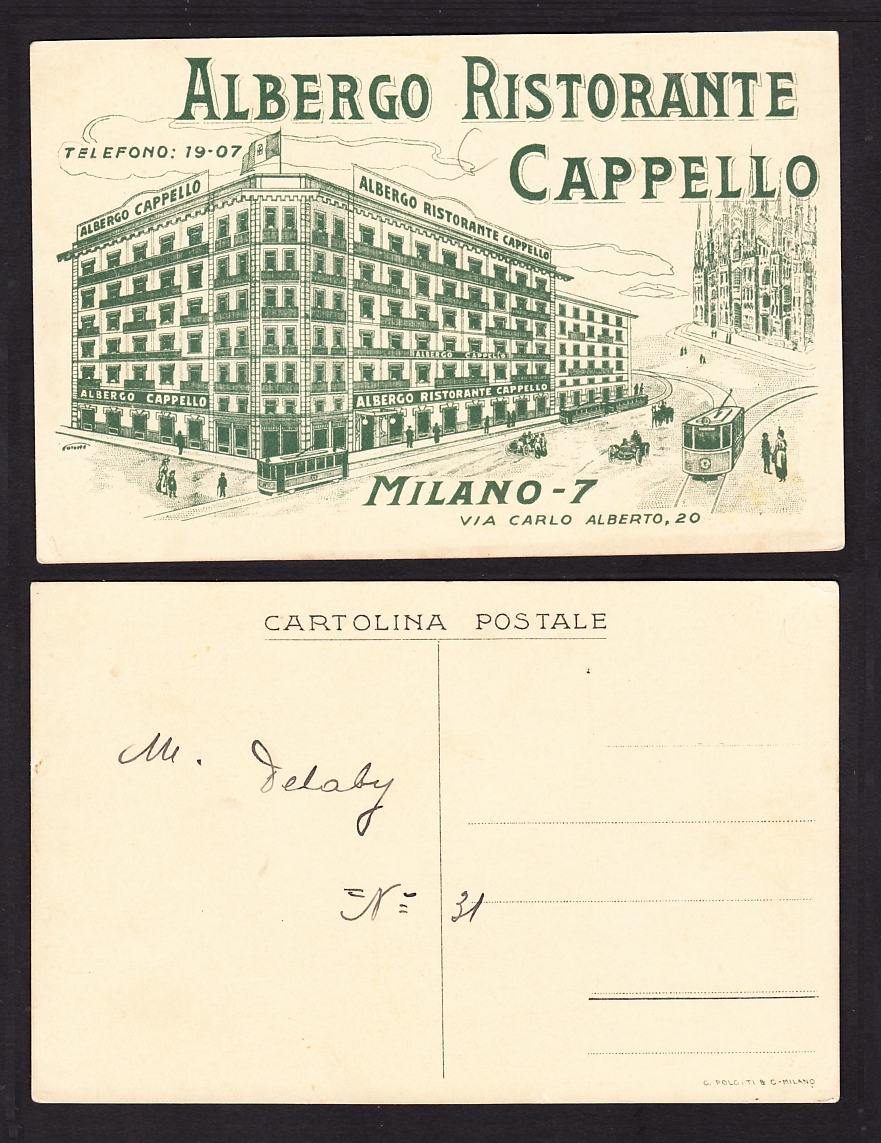 ALBERGO RISTORANTE
CAPPELLO
TELEFONO: 19-07
ALBERGO CAPPELLO
ALBERGO RISTORANTE CAPPELLO
ALBERGO CAPPELLO
ALBERGO CAPPELLO
ALBERGO RISTORANTE CAPPELLO
MILANO-7
VIA CARLO ALBERTO, 20
CARTOLINA POSTALE
M. Delaby
No 31
& C-MILANO